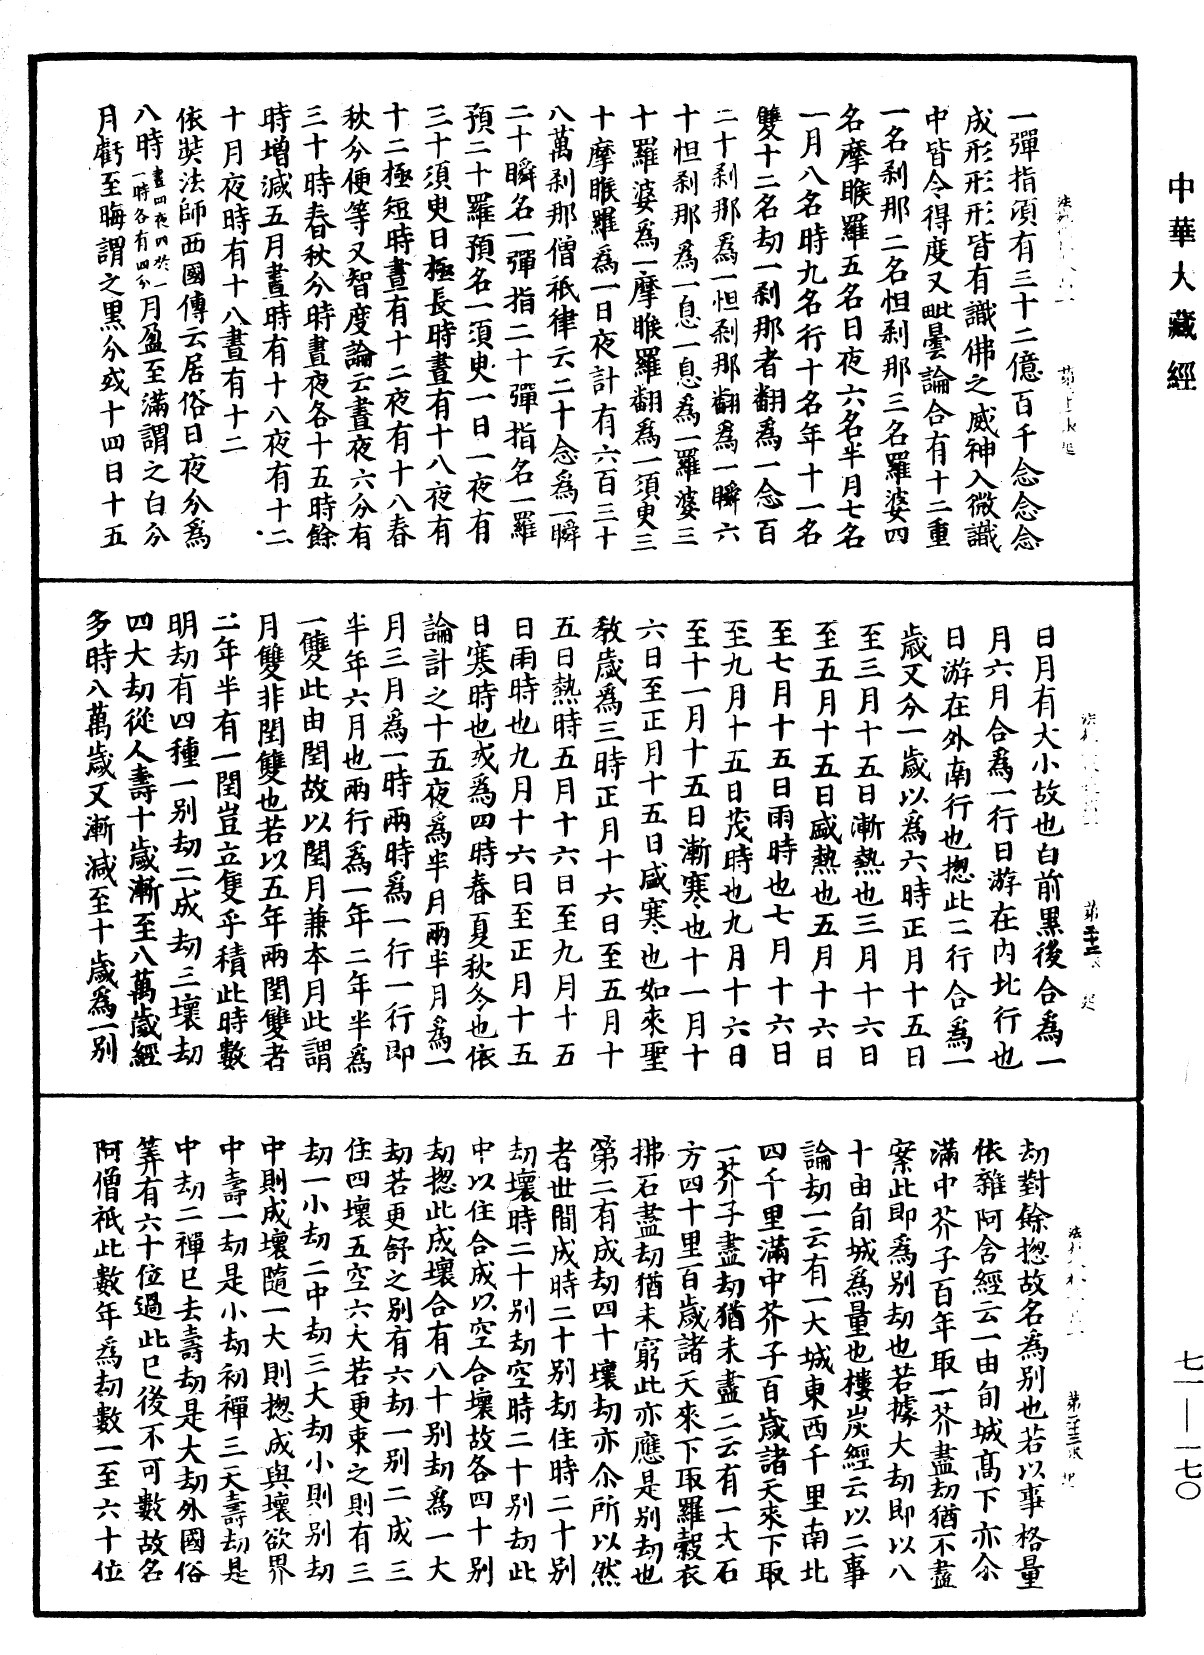 中華大藏經
一彈指頃有三十二億百千念念念
成形形形皆有識佛之威神入微識
中皆令得度又毗曇論合有十二重
一名剎那二名怛剎那三名羅婆四
名摩睺羅五名日夜六名半月七名
一月八名時九名行十名年十一名
雙十二名劫一剎那者翻為一念百
二十剎那為一怛剎那翻為一瞬六
十怛剎那為一息一息為一羅婆三
十羅婆為一摩睺羅翻為一須臾三
十摩睺羅為一日夜計有六百三十
八萬剎那僧祇律云二十念為一瞬
二十瞬名一彈指二十彈指名一羅
預二十羅預名一須臾一日一夜有
三十須臾日極長時晝有十八夜有
十二極短時晝有十二夜有十八春
秋分便等又智度論云晝夜六分有
三十時春秋分時晝夜各十五時餘
時增減五月晝時有十八夜有十二
十月夜時有十八晝有十二
依奘法師西國傳云居俗日夜分為
八時晝四夜四於一時各有四分一月盈至滿謂之白分
月虧至晦謂之黑分或十四日十五
日月有大小故也白前黑後合為一
月六月合為一行日游在內北行也
日游在外南行也揔此二行合為一
歲又分一歲以為六時正月十五日
至三月十五日漸熱也三月十六日
至五月十五日盛熱也五月十六日
至七月十五日雨時也七月十六日
至九月十五日茂時也九月十六日
至十一月十五日漸寒也十一月十
六日至正月十五日盛寒也如來聖
教歲為三時正月十六日至五月十
五日熱時五月十六日至九月十五
日雨時也九月十六日至正月十五
日寒時也或為四時春夏秋冬也依
論計之十五夜為半月兩半月為一
月三月為一時兩時為一行一行即
半年六月也兩行為一年二年半為
一雙此由閏故以閏月兼本月此謂
月雙非閏雙也若以五年兩閏雙者
二年半有一閏豈立隻乎積此時數
明劫有四種一別劫二成劫三壞劫
四大劫從人壽十歲漸至八萬歲經
多時八萬歲又漸減至十歲為一別
劫對餘揔故名為別也若以事格量
依雜阿含經云一由旬城高下亦尒
滿中芥子百年取一芥盡劫猶不盡
案此即為別劫也若據大劫即以八
十由旬城為量也樓炭經云以二事
論劫一云有一大城東西千里南北
四千里滿中芥子百歲諸天來下取
一芥子盡劫猶未盡二云有一大石
方四十里百歲諸天來下取羅縠衣
拂石盡劫猶未窮此亦應是別劫也
第二有成劫四十壞劫亦尒所以然
者世間成時二十別劫住時二十別
劫壞時二十別劫空時二十別劫此
中以住合成以空合壞故各四十別
劫揔此成壞合有八十別劫為一大
劫若更舒之別有六劫一別二成三
住四壞五空六大若更束之則有三
劫一小劫二中劫三大劫小則別劫
中則成壞隨一大則揔成與壞欲界
中壽一劫是小劫初禪三天壽劫是
中劫二禪已去壽劫是大劫外國俗
筭有六十位過此已後不可數故名
阿僧祇此數年為劫數一至六十位
七一—一七〇